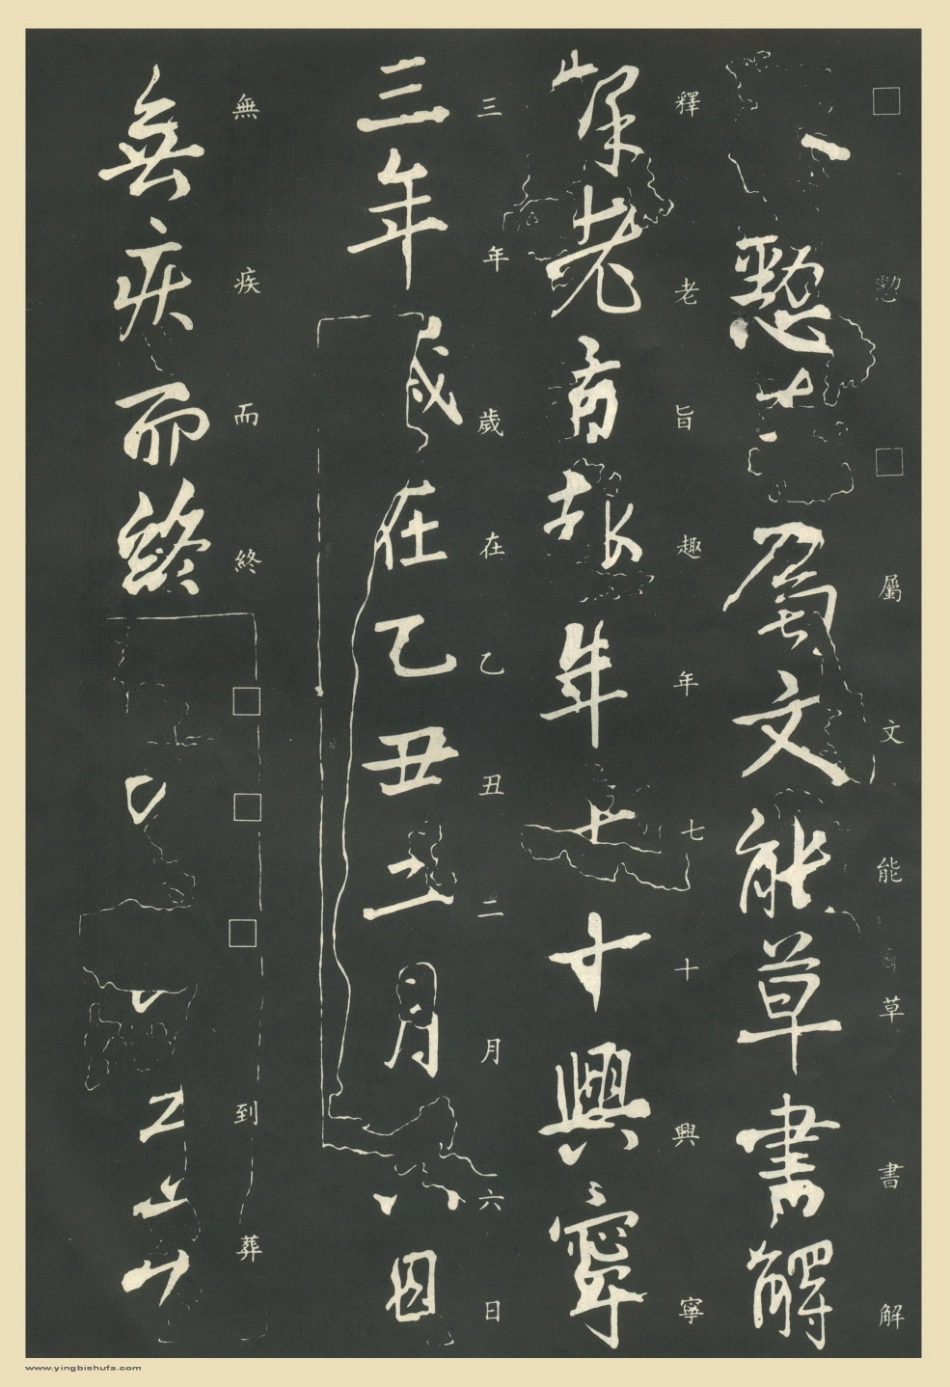 □懃□屬文能草書解
釋老旨趣年七十興寧
三年歲在乙丑二月六日
無疾而終□□□到葬
www.yingbishufa.com